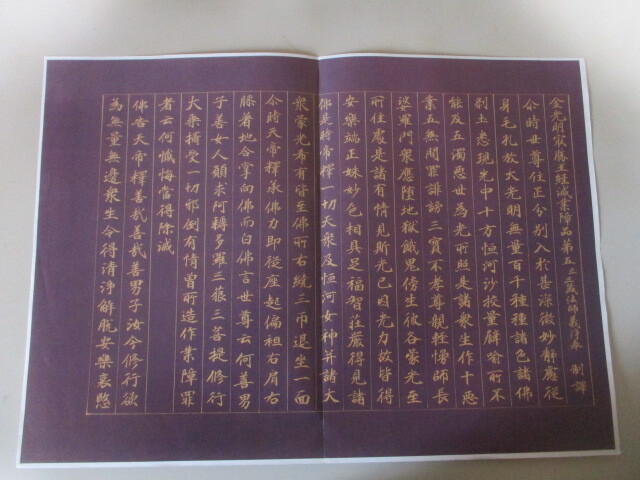 金光明最勝王經滅業障品第五 三藏法師義淨奉 制譯
尒時世尊住正分別入於甚深微妙靜慮從
身毛孔放大光明無量百千種種諸色諸佛
剎土悉現光中十方恒河沙挍量譬喻所不
能及五濁惡世為光所照是諸衆生作十惡
業五無間罪誹謗三寶不孝尊親輕慢師長
婆羅門衆應墮地獄餓鬼傍生彼各蒙光至
所住處是諸有情見斯光已因光力故皆得
安樂端正姝妙色相具足福智莊嚴得見諸
佛是時帝釋一切天衆及恒河女神并諸大
衆蒙光希有皆至佛所右繞三帀退坐一面
尒時天帝釋承佛力即從座起偏袒右肩右
膝着地合掌向佛而白佛言世尊云何善男
子善女人願求阿耨多羅三藐三菩提修行
大乘攝受一切邪倒有情曾所造作業障罪
者云何懺悔當得除滅
佛告天帝釋善哉善哉善男子汝今修行欲
為無量無邊衆生令得清淨解脫安樂哀愍